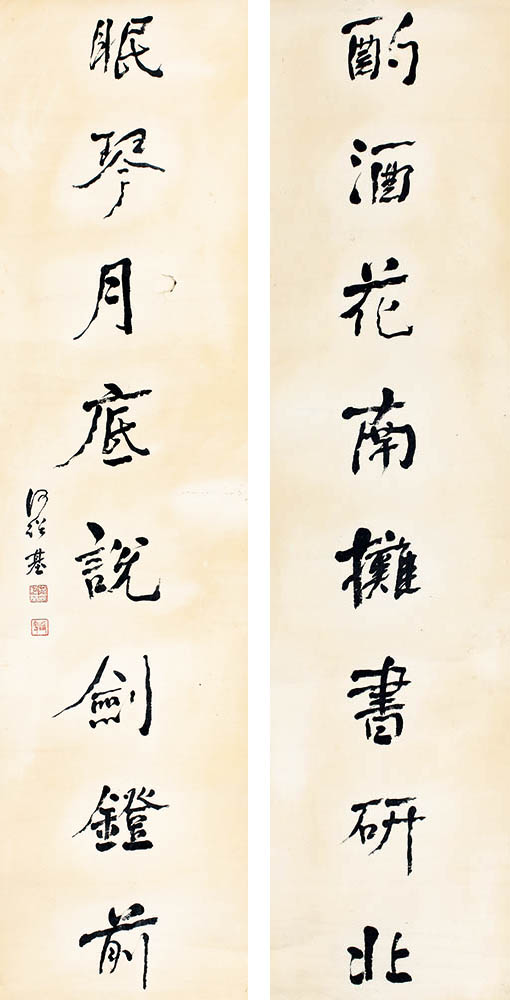 酌酒花南擁書研北
眠琴月底說劍鐙前
何紹基